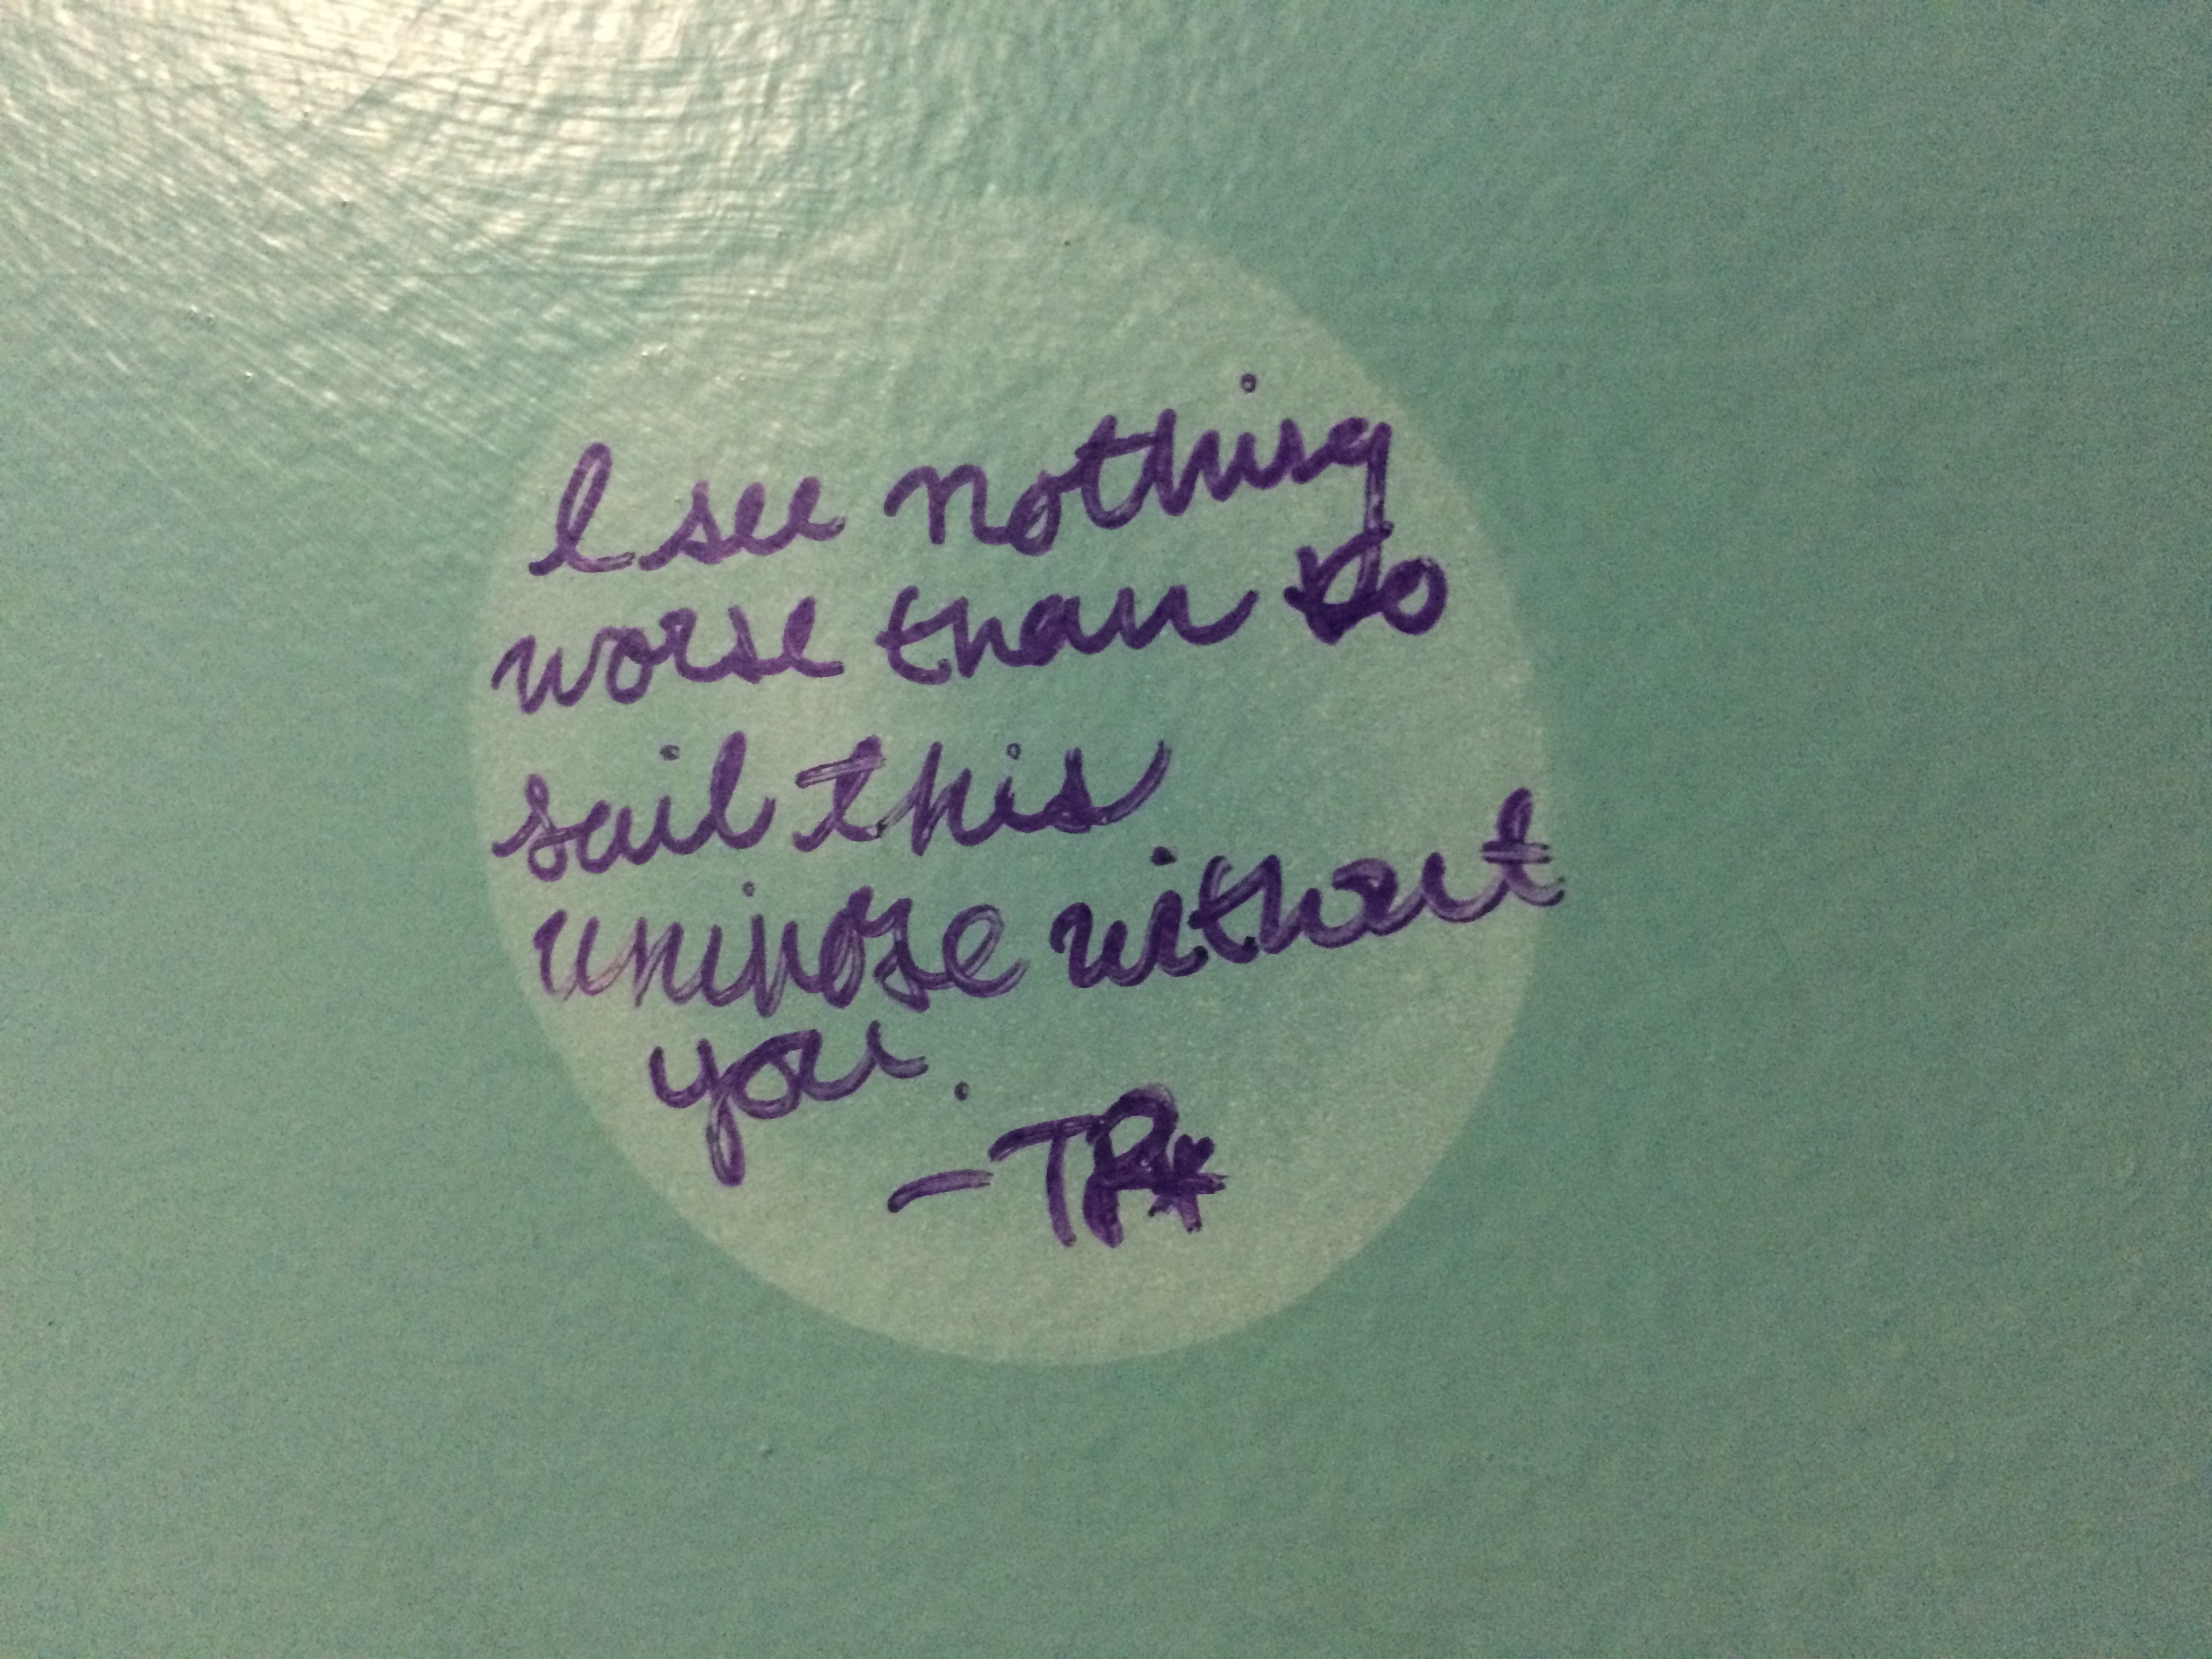 I see nothing
worse than to
sail this
universe without
you.
-TP*